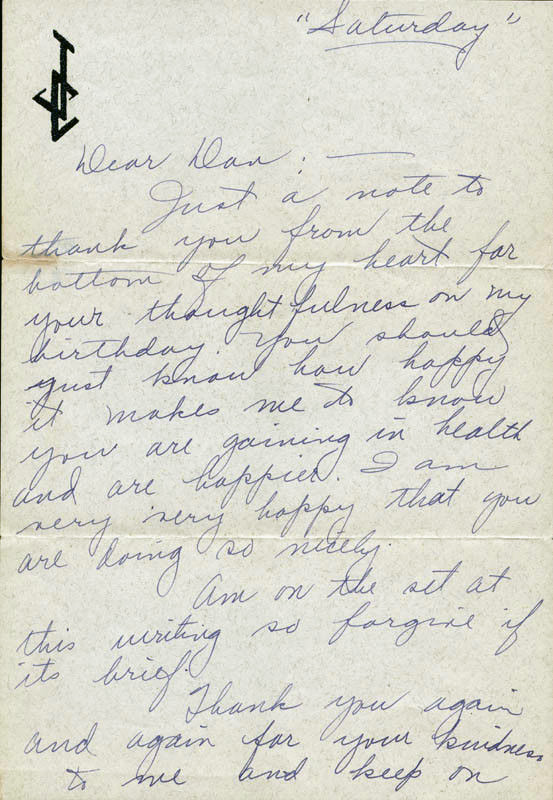 "Saturday"
Dear Dan: —
Just a note to
thank you from the
bottom of my heart for
your thoughtfulness on my
birthday. You should
just know how happy
it makes me to know
you are gaining in health
and are happier. I am
very very happy that you
are doing so nicely.
Am on the set at
this writing so forgive if
its brief.
Thank you again
and again for your kindness
to me and keep on